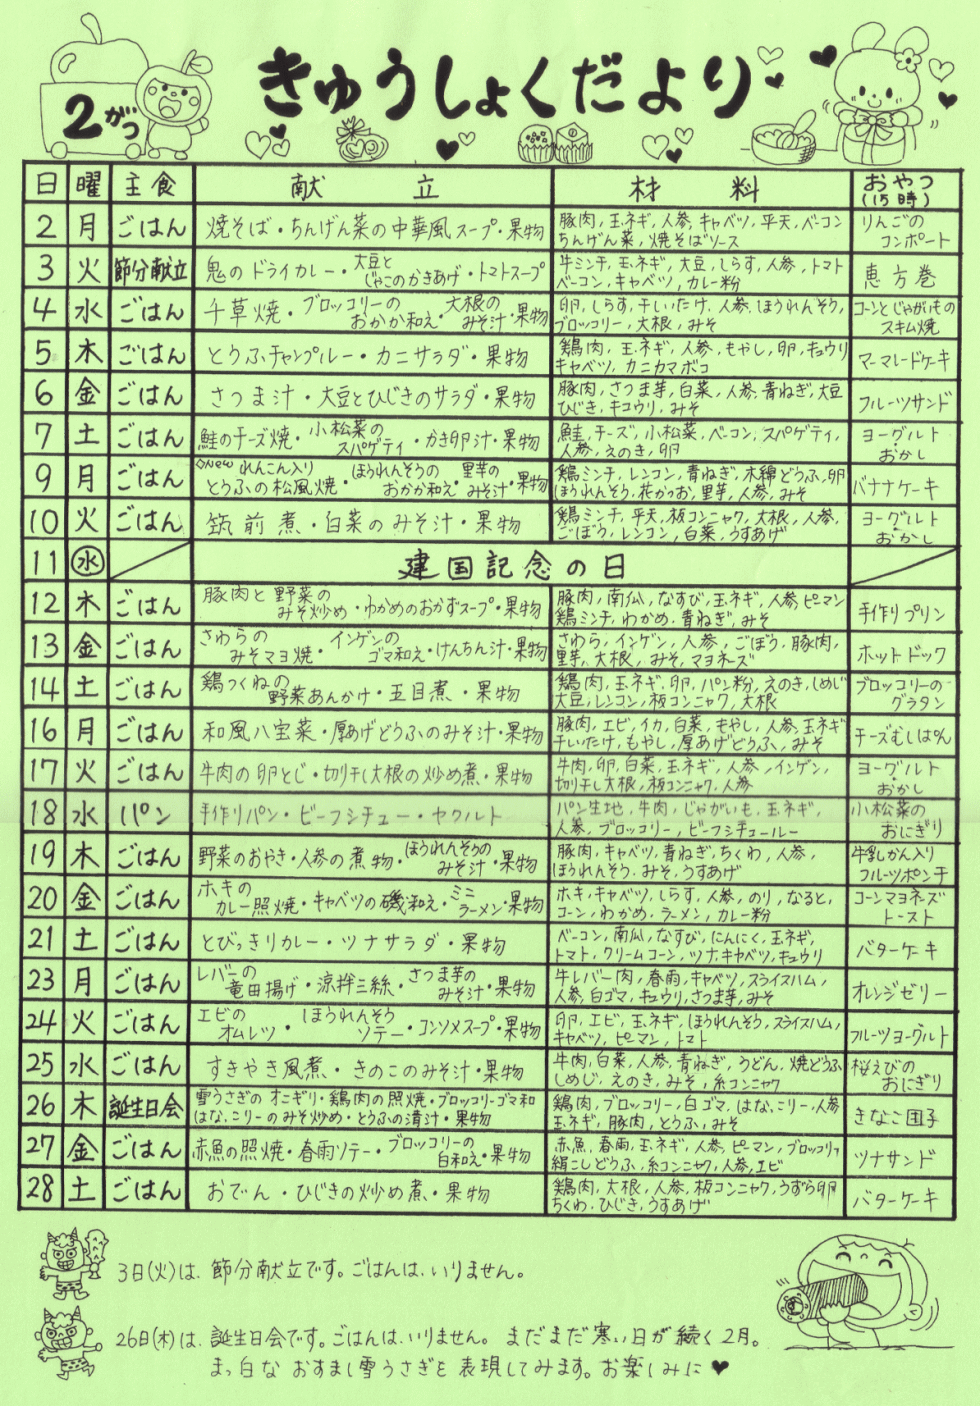 2がつ
きゅうしょくだより
日 曜 主食 献立 材料 おやつ(15時)
2 月 ごはん 焼そば・ちんげん菜の中華風スープ・果物 豚肉,玉ネギ,人参,キャベツ,平天,ベーコン りんごの
ちんげん菜,焼そばソース コンポート
3 火 節分献立 鬼のドライカレー・大豆とじゃこのかきあげ・トマトスープ 牛ミンチ,玉ネギ,大豆,しらす,人参,トマト 恵方巻
ベーコン,キャベツ,カレー粉
4 水 ごはん 千草焼・ブロッコリーのおかか和え・大根のみそ汁・果物 卵,しらす,干しいたけ,人参,ほうれんそう, コーンとじゃがいもの
ブロッコリー,大根,みそ スキム焼
5 木 ごはん とうふチャンプルー・カニサラダ・果物 鶏肉,玉ネギ,人参,もやし,卵,キュウリ マーマレードケーキ
キャベツ,カニカマボコ
6 金 ごはん さつま汁・大豆とひじきのサラダ・果物 豚肉,さつま芋,白菜,人参,青ねぎ,大豆 フルーツサンド
ひじき,キュウリ,みそ
7 土 ごはん 鮭のチーズ焼・小松菜のスパゲティ・かき卵汁・果物 鮭,チーズ,小松菜,ベーコン,スパゲティ, ヨーグルト
人参,えのき,卵 おかし
9 月 ごはん ◇New れんこん入りとうふの松風焼・ほうれんそうのおかか和え・里芋のみそ汁・果物 鶏ミンチ,レンコン,青ねぎ,木綿どうふ,卵 バナナケーキ
ほうれんそう,花かつお,里芋,人参,みそ
10 火 ごはん 筑前煮・白菜のみそ汁・果物 鶏ミンチ,平天,板コンニャク,大根,人参, ヨーグルト
ごぼう,レンコン,白菜,うすあげ おかし
11 水 建国記念の日
12 木 ごはん 豚肉と野菜のみそ炒め・わかめのおかずスープ・果物 豚肉,南瓜,なすび,玉ネギ,人参,ピーマン 手作りプリン
鶏ミンチ,わかめ,青ねぎ,みそ
13 金 ごはん さわらのみそマヨ焼・インゲンのゴマ和え・けんちん汁・果物 さわら,インゲン,人参,ごぼう,豚肉, ホットドック
里芋,大根,みそ,マヨネーズ
14 土 ごはん 鶏つくねの野菜あんかけ・五目煮・果物 鶏肉,玉ネギ,卵,パン粉,えのき,しめじ ブロッコリーの
大豆,レンコン,板コンニャク,大根 グラタン
16 月 ごはん 和風八宝菜・厚あげどうふのみそ汁・果物 豚肉,エビ,イカ,白菜,もやし,人参,玉ネギ チーズむしぱん
干いたけ,もやし,厚あげどうふ,みそ
17 火 ごはん 牛肉の卵とじ・切り干し大根の炒め煮・果物 牛肉,卵,白菜,玉ネギ,人参,インゲン, ヨーグルト
切り干し大根,板コンニャク,人参 おかし
18 水 パン 手作りパン・ビーフシチュー・ヤクルト パン生地,牛肉,じゃがいも,玉ネギ, 小松菜の
人参,ブロッコリー,ビーフシチュールー おにぎり
19 木 ごはん 野菜のおやき・人参の煮物・ほうれんそうのみそ汁・果物 豚肉,キャベツ,青ねぎ,ちくわ,人参, 牛乳かん入り
ほうれんそう,みそ,うすあげ フルーツポンチ
20 金 ごはん ホキのカレー照焼・キャベツの磯和え・ミニラーメン・果物 ホキ,キャベツ,しらす,人参,のり,なると, コーンマヨネーズ
コーン,わかめ,ラーメン,カレー粉 トースト
21 土 ごはん とびっきりカレー・ツナサラダ・果物 ベーコン,南瓜,なすび,にんにく,玉ネギ, バターケーキ
トマト,クリームコーン,ツナ,キャベツ,キュウリ
23 月 ごはん レバーの竜田揚げ・涼拌三絲・さつま芋のみそ汁・果物 牛レバー肉,春雨,キャベツ,スライスハム, オレンジゼリー
人参,白ゴマ,キュウリ,さつま芋,みそ
24 火 ごはん エビのオムレツ・ほうれんそうソテー・コンソメスープ・果物 卵,エビ,玉ネギ,ほうれんそう,スライスハム, フルーツヨーグルト
キャベツ,ピーマン,トマト
25 水 ごはん すきやき風煮・きのこのみそ汁・果物 牛肉,白菜,人参,青ねぎ,うどん,焼どうふ 桜えびの
しめじ,えのき,みそ,糸コンニャク おにぎり
26 木 誕生日会 雪うさぎのオニギリ・鶏肉の照焼・ブロッコリーゴマ和 鶏肉,ブロッコリー,白ゴマ,はなっこりー,人参 きなこ団子
はなっこりーのみそ炒め・とうふの清汁・果物 玉ネギ,豚肉,とうふ,みそ
27 金 ごはん 赤魚の照焼・春雨ソテー・ブロッコリーの白和え・果物 赤魚,春雨,玉ネギ,人参,ピーマン,ブロッコリー ツナサンド
絹こしどうふ,糸コンニャク,人参,エビ
28 土 ごはん おでん・ひじきの炒め煮・果物 鶏肉,大根,人参,板コンニャク,うずら卵 バターケーキ
ちくわ,ひじき,うすあげ
3日(火)は、節分献立です。ごはんは、いりません。
26日(木)は、誕生日会です。ごはんは、いりません。 まだまだ寒い日が続く2月。
まっ白なおすまし雪うさぎを表現してみます。お楽しみに♥